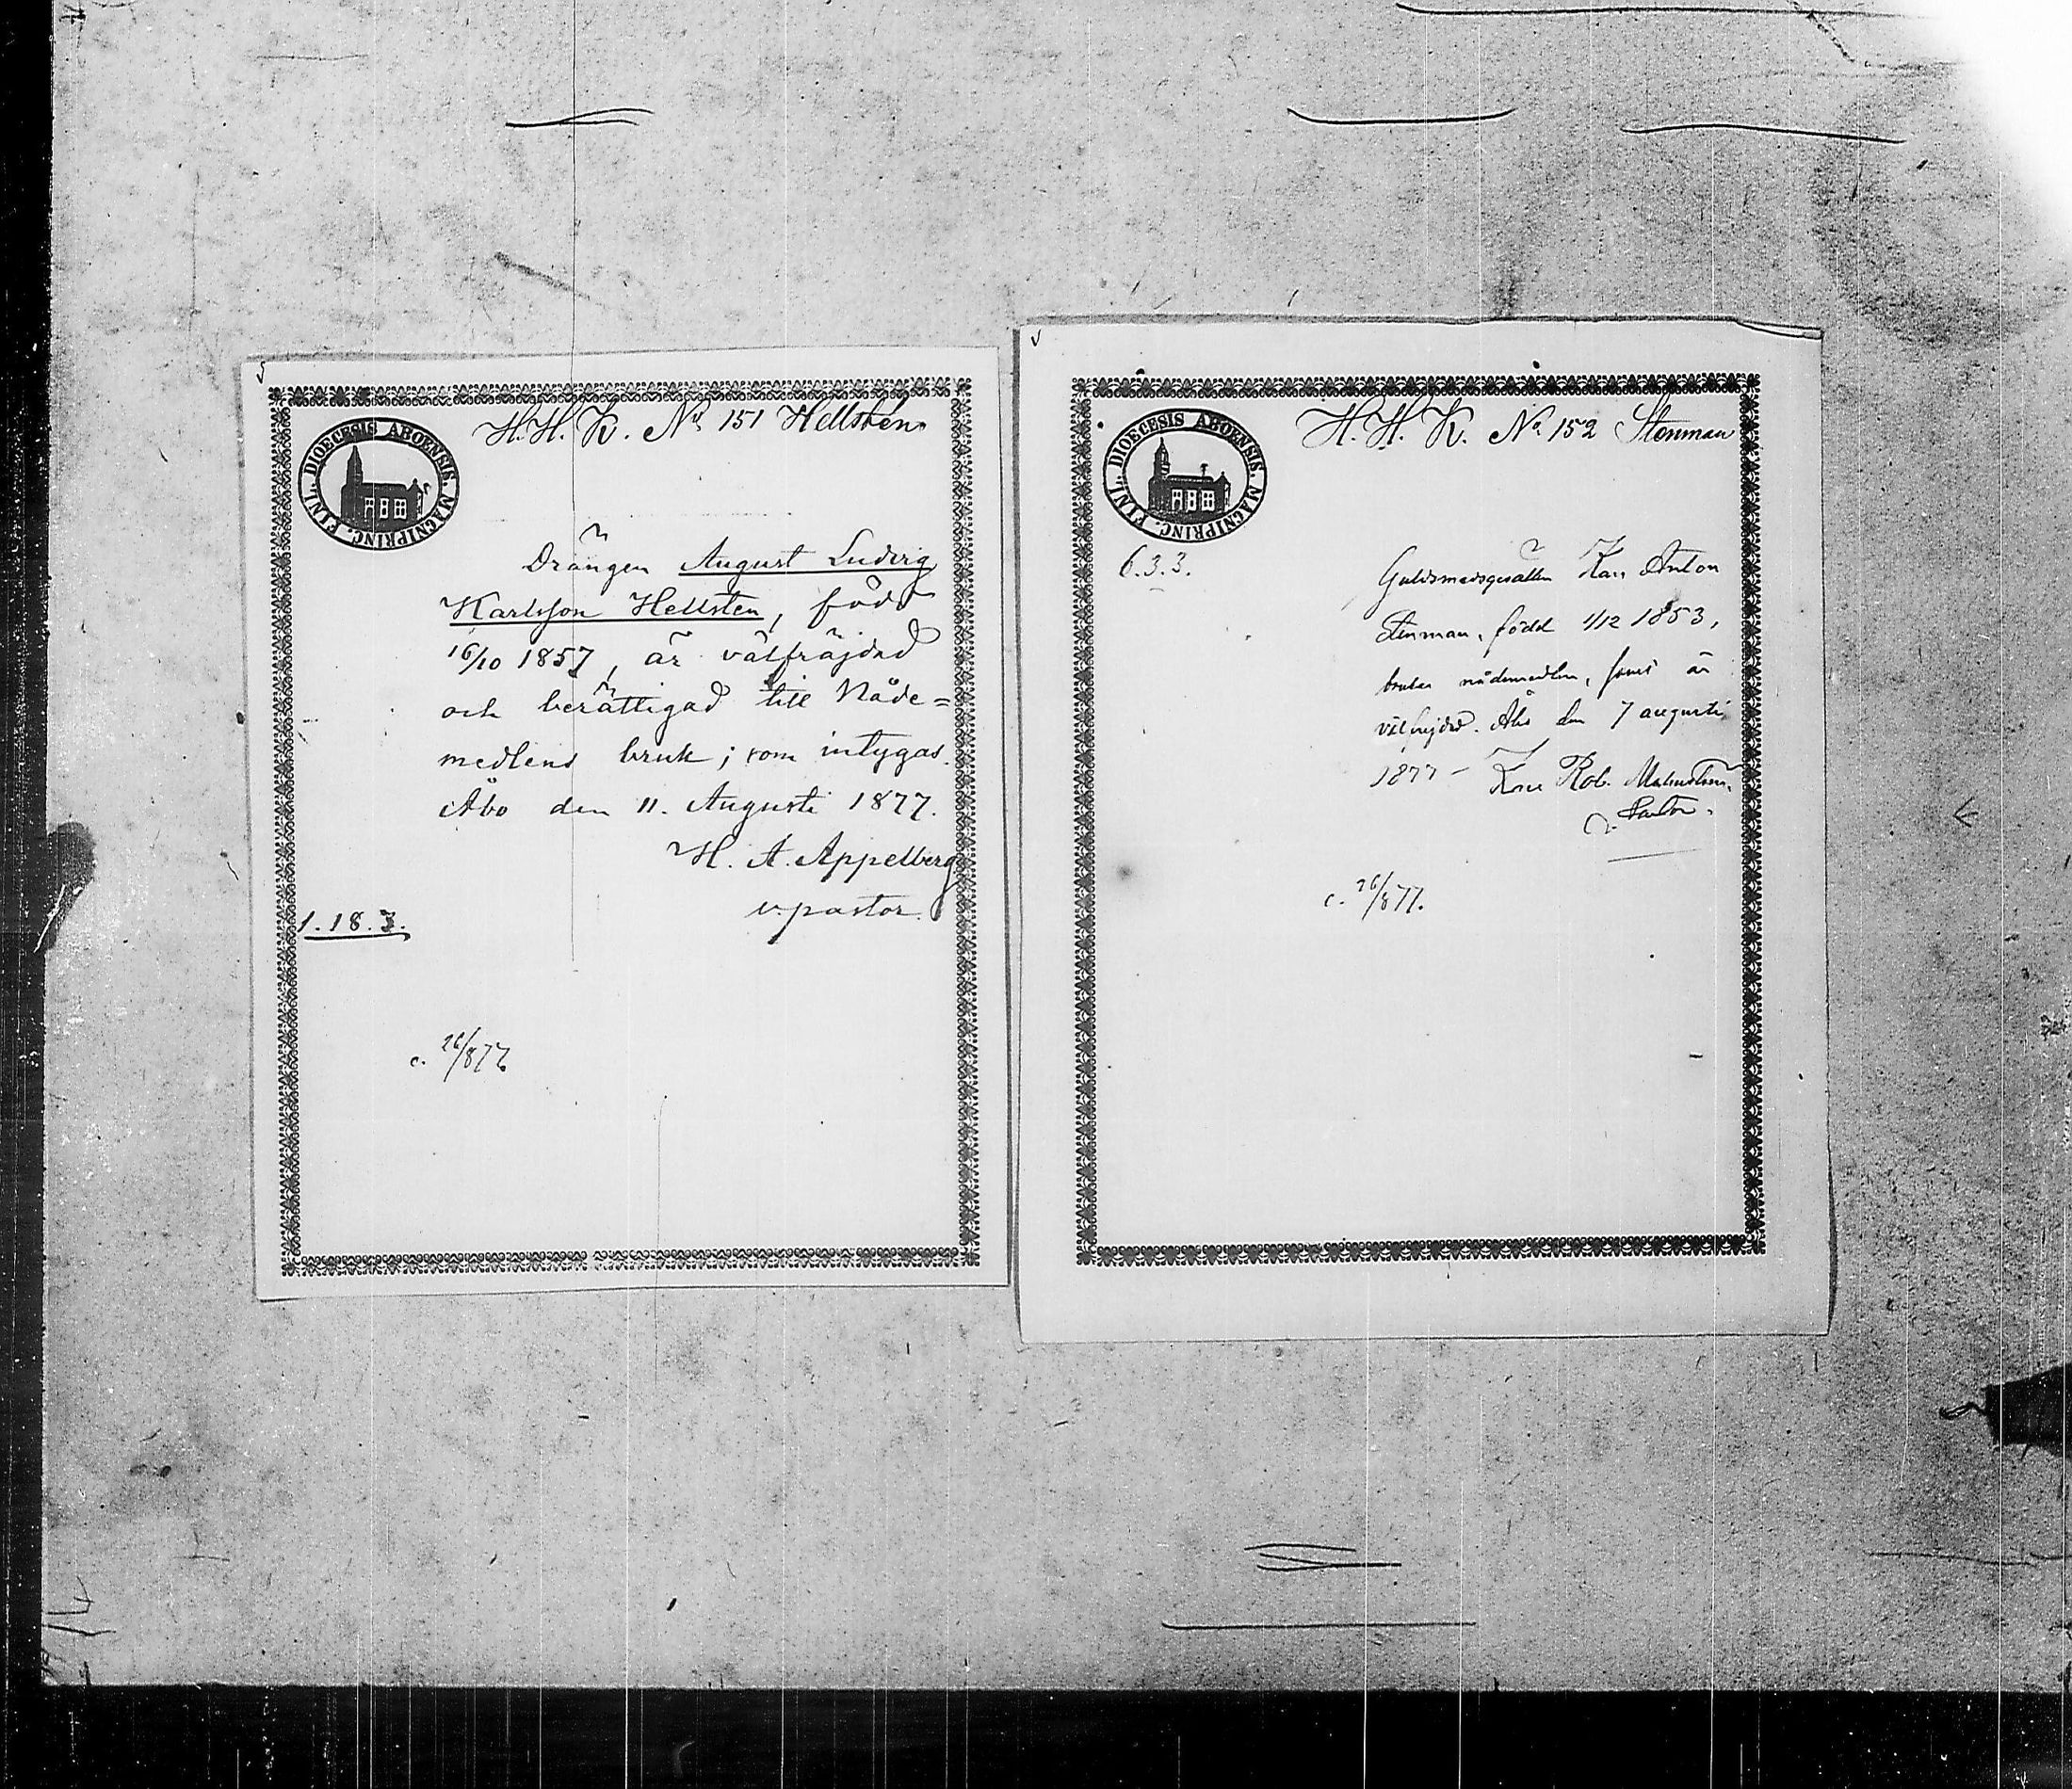 H. H. K. No 151 Hellsten
DIOECESIS ABOENSIS. MAGNIPRINC. FINL.
Drängen August Ludvig
Karlsson Hellsten, född
16/10 1857, är välfräjdad
och berättigad till Nåde=
medlens bruk; som intygas.
Åbo den 11. Augusti 1877.
H. A. Appelberg
v. pastor.
1. 18. 3.
c. 26/877.
H. H. K. No 152 Stenman
DIOECESIS ABOENSIS. MAGNIPRINC. FINL.
6. 3. 3.
Guldsmedsgesällen Karl Anton
Stenman, född 1/12 1853,
brukar nådemedlen, är
välfrejdad. Åbo den 7 augusti
1877 - Rob. Malmström.
v. Pastor.
c. 26/877.